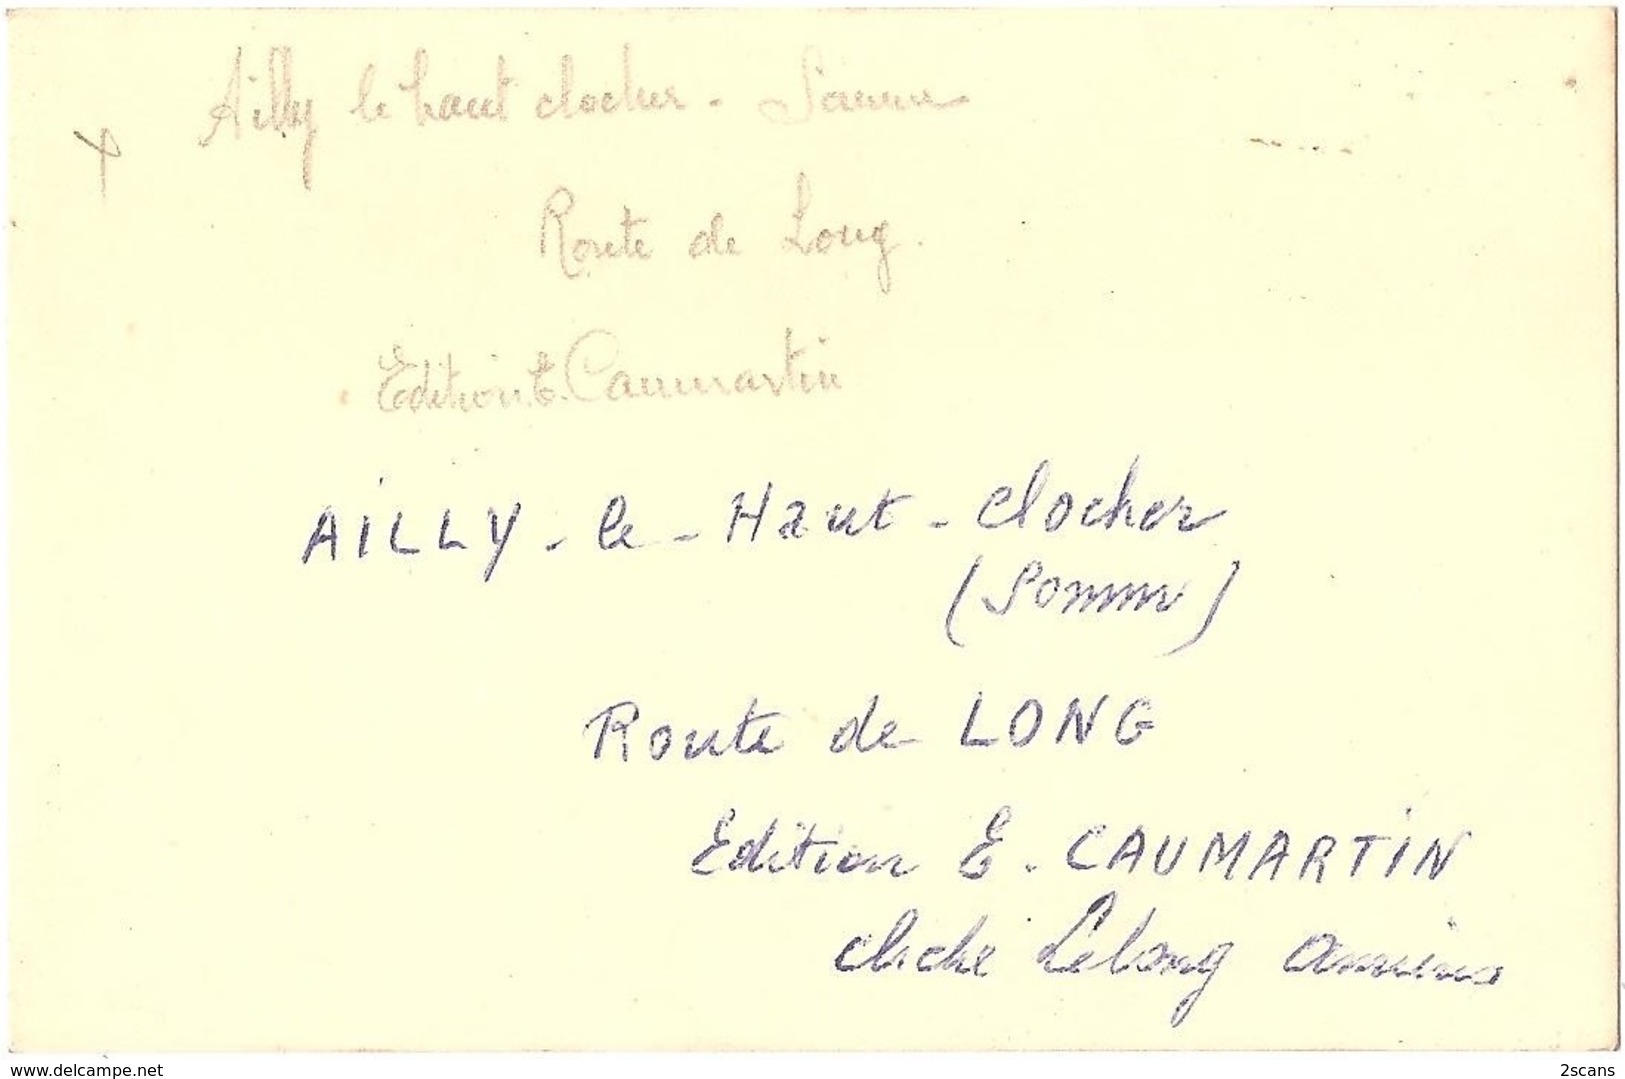 Ailly le haut clocher - Somme
Route de Long.
Edition E. Caumartin
AILLY - le - Haut - Clocher
(Somme)
Route de LONG
Edition E. CAUMARTIN
cliché Lelong Amiens
www.delcampe.net
2scans